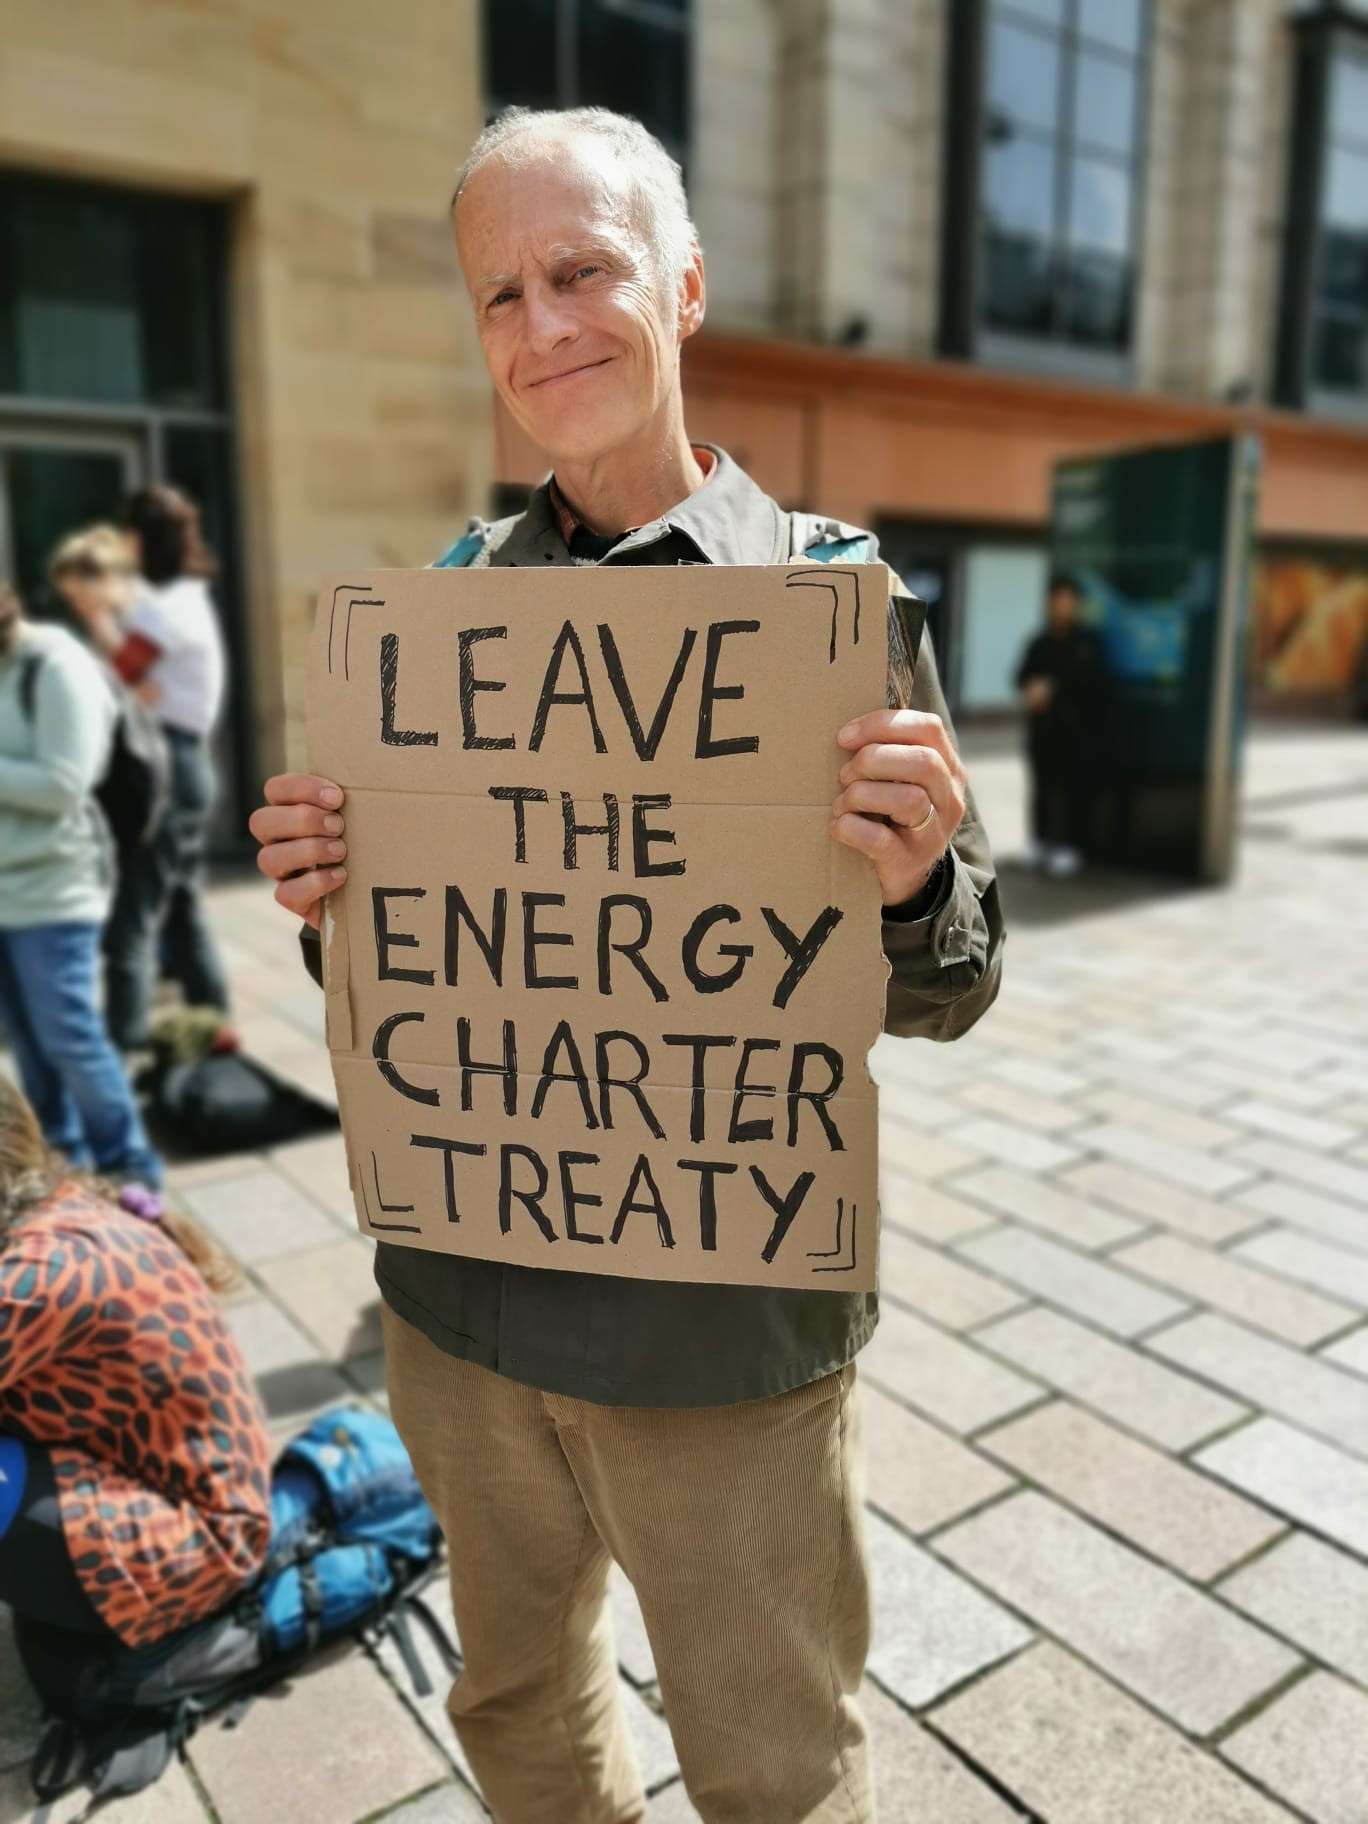 LEAVE
THE
ENERGY
CHARTER
TREATY